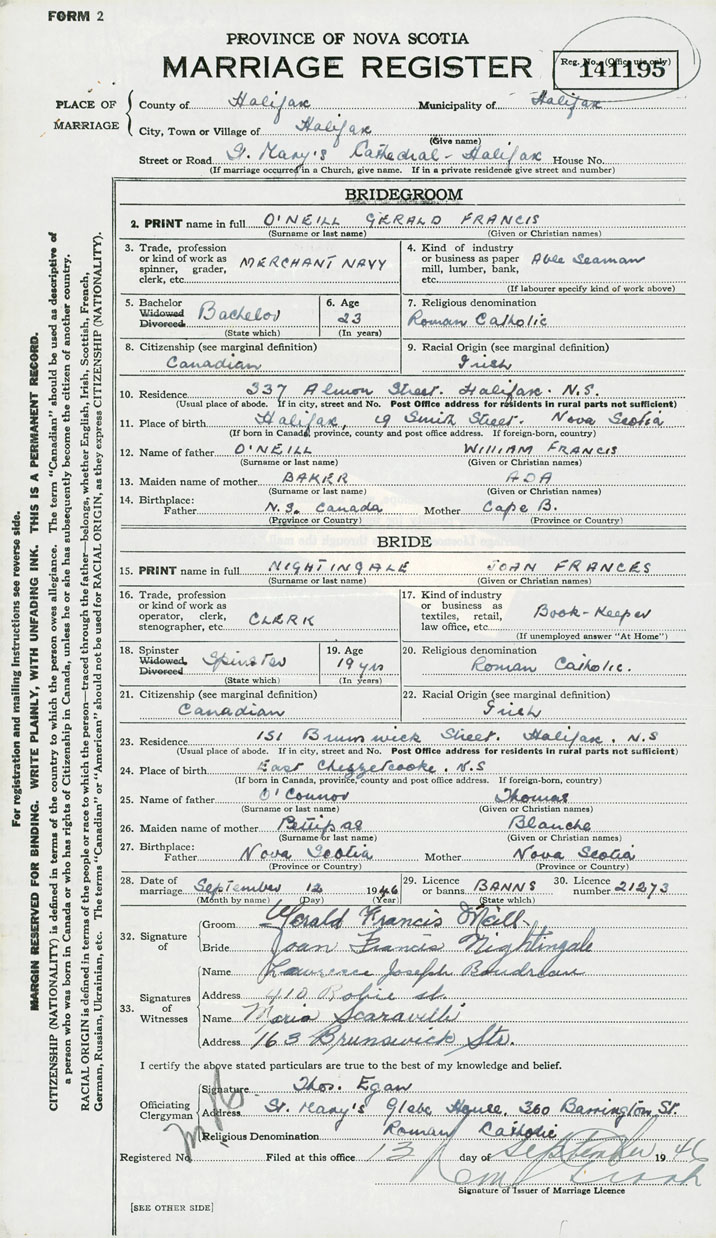 FORM 2
PROVINCE OF NOVA SCOTIA
MARRIAGE REGISTER
Reg. No. (Office use only)
141195
PLACE OF MARRIAGE
County of Halifax Municipality of Halifax
City, Town or Village of Halifax
(Give name)
Street or Road St. Mary's Cathedral - Halifax House No.
(If marriage occurred in a Church, give name. If in a private residence give street and number)
BRIDEGROOM
2. PRINT name in full O'NEILL GERALD FRANCIS
(Surname or last name) (Given or Christian names)
3. Trade, profession or kind of work as spinner, grader, clerk, etc. MERCHANT NAVY
4. Kind of industry or business as paper mill, lumber, bank, etc. Able Seaman
(If labourer specify kind of work above)
5. Bachelor Widowed Divorced Bachelor
(State which)
6. Age 23
(In years)
7. Religious denomination
Roman Catholic
8. Citizenship (see marginal definition)
Canadian
9. Racial Origin (see marginal definition)
Irish
10. Residence 337 Almon Street. Halifax. N.S.
(Usual place of abode. If in city, street and No. Post Office address for residents in rural parts not sufficient)
11. Place of birth Halifax, 19 Smith Street. Nova Scotia
(If born in Canada, province, county and post office address. If foreign-born, country)
12. Name of father O'NEILL WILLIAM FRANCIS
(Surname or last name) (Given or Christian names)
13. Maiden name of mother BAKER ADA
(Surname or last name) (Given or Christian names)
14. Birthplace:
Father N.S. Canada Mother Cape B.
(Province or Country) (Province or Country)
BRIDE
15. PRINT name in full NIGHTINGALE JOAN FRANCES
(Surname or last name) (Given or Christian names)
16. Trade, profession or kind of work as operator, clerk, stenographer, etc. CLERK
17. Kind of industry or business as textiles, retail, law office, etc. Book-Keeper
(If unemployed answer "At Home")
18. Spinster Widowed, Divorced Spinster
(State which)
19. Age 19 yrs
(In years)
20. Religious denomination
Roman Catholic.
21. Citizenship (see marginal definition)
Canadian
22. Racial Origin (see marginal definition)
Irish
23. Residence 151 Brunswick Street. Halifax. N.S
(Usual place of abode. If in city, street and No. Post Office address for residents in rural parts not sufficient)
24. Place of birth East Chezzetcooke. N.S
(If born in Canada, province, county and post office address. If foreign-born, country)
25. Name of father O'Connor Thomas
(Surname or last name) (Given or Christian names)
26. Maiden name of mother Pettipas Blanche
(Surname or last name) (Given or Christian names)
27. Birthplace:
Father Nova Scotia Mother Nova Scotia
(Province or Country) (Province or Country)
28. Date of marriage September 12 1946
(Month by name) (Day) (Year)
29. Licence or banns BANNS
(State which)
30. Licence number 21273
32. Signature of
Groom Gerald Francis O'Neill
Bride Joan Francis Nightingale
33. Signatures of Witnesses
Name Lawrence Joseph Boudreau
Address 410 Robie st.
Name Maria Scaravilli
Address 163 Brunswick Str.
I certify the above stated particulars are true to the best of my knowledge and belief.
Officiating Clergyman
Signature Thos. Egan
Address St. Mary's Glebe House, 360 Barrington St.
Religious Denomination Roman Catholic
Registered No. Filed at this office 13 day of September 1946
Signature of Issuer of Marriage Licence
[SEE OTHER SIDE]
For registration and mailing instructions see reverse side.
MARGIN RESERVED FOR BINDING. WRITE PLAINLY, WITH UNFADING INK. THIS IS A PERMANENT RECORD.
CITIZENSHIP (NATIONALITY) is defined in terms of the country to which the person owes allegiance. The term "Canadian" should be used as descriptive of
a person who was born in Canada or who has rights of Citizenship in Canada, unless he or she has subsequently become the citizen of another country.
RACIAL ORIGIN is defined in terms of the people or race to which the person—traced through the father—belongs, whether English, Irish, Scottish, French,
German, Russian, Ukrainian, etc. The terms "Canadian" or "American" should not be used for RACIAL ORIGIN, as they express CITIZENSHIP (NATIONALITY).